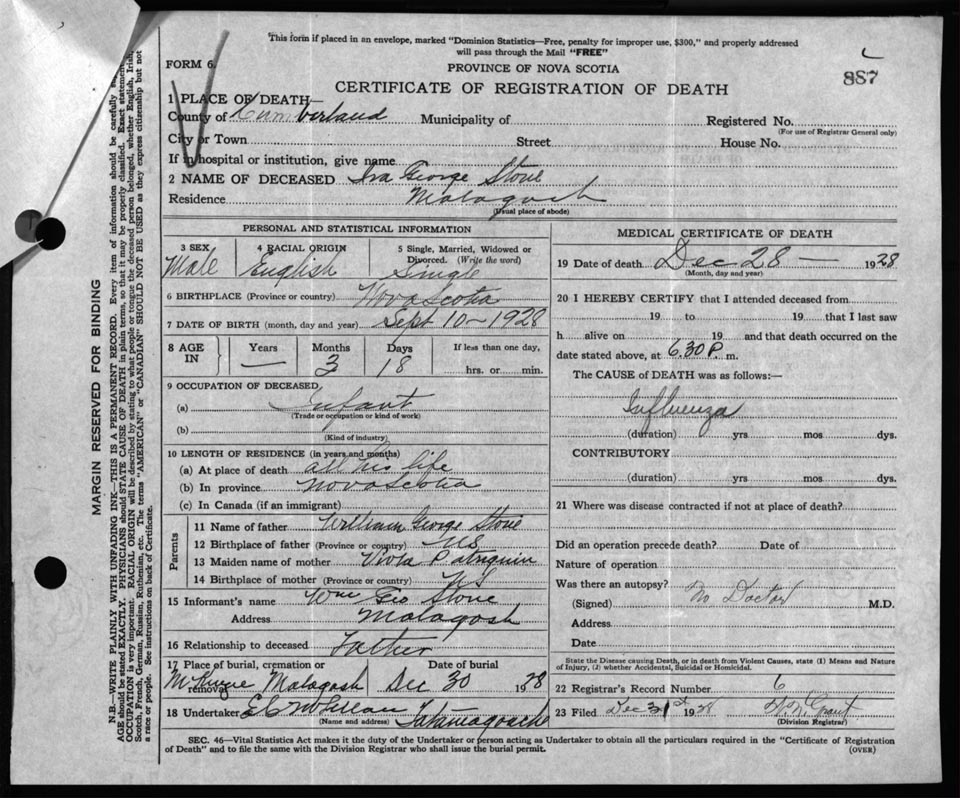 This form if placed in an envelope, marked "Dominion Statistics—Free, penalty for improper use, $300," and properly addressed
will pass through the Mail "FREE"
FORM 6.
PROVINCE OF NOVA SCOTIA
887
CERTIFICATE OF REGISTRATION OF DEATH
1 PLACE OF DEATH—
County of Cumberland Municipality of Registered No.
(For use of Registrar General only)
City or Town Street House No.
If in hospital or institution, give name
2 NAME OF DECEASED Ira George Stone
Residence Malagash
(Usual place of abode)
PERSONAL AND STATISTICAL INFORMATION
3 SEX 4 RACIAL ORIGIN 5 Single, Married, Widowed or
Divorced. (Write the word)
Male English Single
6 BIRTHPLACE (Province or country) Nova Scotia
7 DATE OF BIRTH (month, day and year) Sept 10 - 1928
8 AGE IN Years Months Days If less than one day,
— 3 18 hrs. or min.
9 OCCUPATION OF DECEASED
(a) Infant
(Trade or occupation or kind of work)
(b)
(Kind of industry)
10 LENGTH OF RESIDENCE (in years and months)
(a) At place of death all his life
(b) In province Nova Scotia
(c) In Canada (if an immigrant)
Parents
11 Name of father William George Stone
12 Birthplace of father (Province or country) NS
13 Maiden name of mother Viola Patriquin
14 Birthplace of mother (Province or country) NS
15 Informant's name Wm Geo Stone
Address Malagash
16 Relationship to deceased Father
17 Place of burial, cremation or removal Malagash
Date of burial Dec 30 1928
18 Undertaker Tatamagouche
(Name and address)
MEDICAL CERTIFICATE OF DEATH
19 Date of death Dec 28 — 1928
(Month, day and year)
20 I HEREBY CERTIFY that I attended deceased from
19 to 19 that I last saw
h alive on 19 and that death occurred on the
date stated above, at 6.30 P. m.
The CAUSE of DEATH was as follows:—
Influenza
(duration) yrs mos dys.
CONTRIBUTORY
(duration) yrs mos dys.
21 Where was disease contracted if not at place of death?
Did an operation precede death? Date of
Nature of operation
Was there an autopsy?
(Signed) No Doctor M.D.
Address
Date
State the Disease causing Death, or in death from Violent Causes, state (1) Means and Nature
of Injury, (2) whether Accidental, Suicidal or Homicidal.
22 Registrar's Record Number 6
23 Filed Dec 31st 1928 Grant
(Division Registrar)
SEC. 46—Vital Statistics Act makes it the duty of the Undertaker or person acting as Undertaker to obtain all the particulars required in the "Certificate of Registration
of Death" and to file the same with the Division Registrar who shall issue the burial permit.
(OVER)
MARGIN RESERVED FOR BINDING
N.B.—WRITE PLAINLY WITH UNFADING INK—THIS IS A PERMANENT RECORD. Every item of information should be carefully
AGE should be stated EXACTLY. PHYSICIANS should STATE CAUSE OF DEATH in plain terms, so that it may be properly classified. Exact statement
OCCUPATION is very important. RACIAL ORIGIN will be described by stating to what people or tongue the deceased person belonged, whether English, Irish,
Scotch, French, German, Russian, Ruthenian, etc. The terms "AMERICAN" or "CANADIAN" SHOULD NOT BE USED as they express citizenship but not
a race or people. See instructions on back of Certificate.